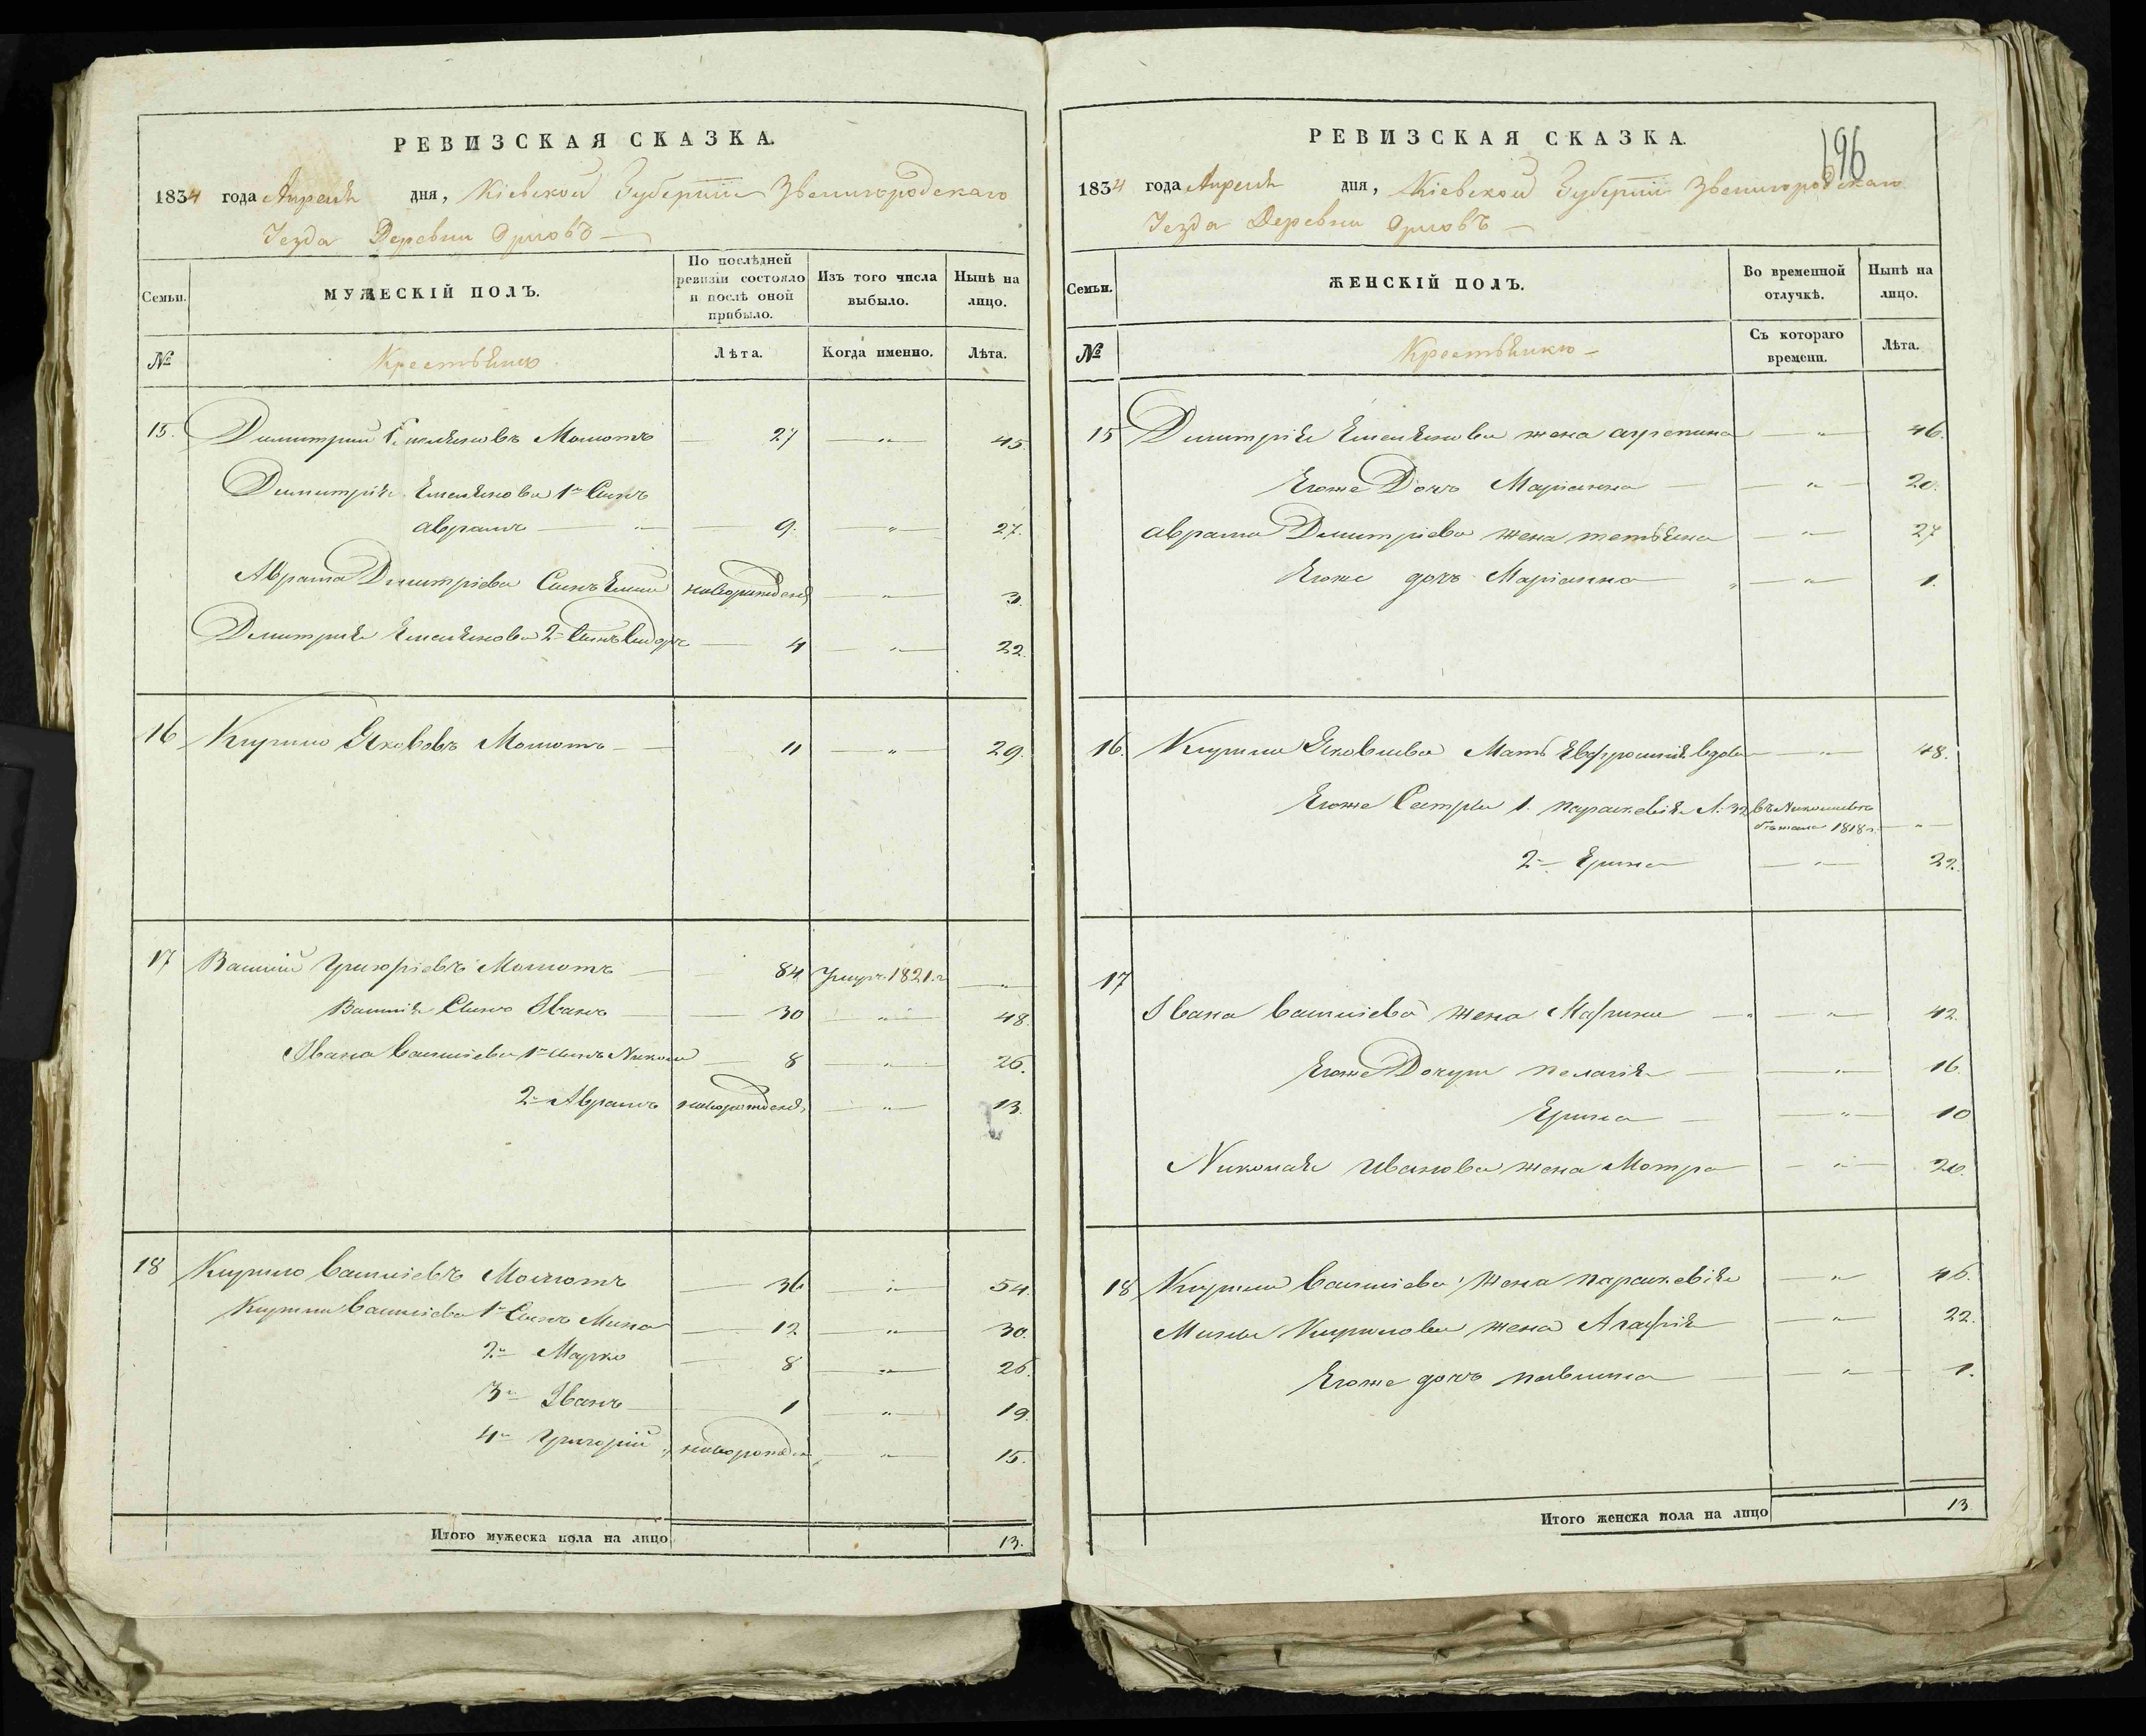 РЕВИЗСКАЯ СКАЗКА.
1834 года Апреля дня, Кіевской Губерніи Звенигородскаго
Уезда Деревни Орловъ
Семьи.
МУЖЕСКІЙ ПОЛЪ.
По послѣдней ревизіи состояло и послѣ оной прибыло.
Изъ того числа выбыло.
Нынѣ на лицо.
№
Крестьяне
Лѣта.
Когда именно.
Лѣта.
15. Димитрий Емельяновъ 27 — „ — 45.
Димитрія Емельянова 1й Сынъ
аврамъ — 9. — „ — 27.
Аврама Дмитріева Сынъ новорожден — „ — 3.
Дмитрія Емельянова 2й Сынъ Сидоръ — 4 — „ — 22.
16 Кирило Яковъ 11 — „ — 29.
17 Василій Григоріевъ 84 Умеръ 1821.г — „ —
Василія Сынъ Иванъ — 30 — „ — 48.
Ивана Василіева 1й сынъ Никола 8 — „ — 26.
2й Аврамъ новорожден. — „ — 13.
18 Кирило Василіевъ — 36 — „ — 54.
Кирила Василіева 1й Сынъ Мина — 12 — „ — 30.
2й Марко — 8 — „ — 26.
3й Иванъ — 1 — „ — 19.
4й Григорій новорожден — „ — 15.
Итого мужеска пола на лицо 13.
РЕВИЗСКАЯ СКАЗКА.
196
1834 года Апреля дня, Кіевской Губерніи Звенигородскаго
Уезда Деревни Орловъ
Семьи.
ЖЕНСКІЙ ПОЛЪ.
Во временной отлучкѣ.
Нынѣ на лицо.
№
Крестьянки
Съ котораго времени.
Лѣта.
15 Дмитрія Емельянова жена агрепина — „ — 46.
Егоже Дочь Маріанна — „ — 20.
аврама Дмитріева жена тетьяна — „ — 27
Егоже дочь Маріанна — „ — 1.
16. Кирила Яковлева Мать Евфросинія вдова — „ — 48.
Егоже Сестры 1. параскевія Л. 32 1818 г. — „ —
2я Ерина — „ — 22.
17
Ивана Василіева жена Марина — „ — 42.
Егоже Дочери пелагія — „ — 16.
Ерина — „ — 10
Николая Иванова жена Мотра — „ — 20.
18 Кирила Василіева жена параскевія — „ — 46.
Мины Кирилова жена Агафія — „ — 22.
Егоже дочь павлина — „ — 1.
Итого женска пола на лицо 13